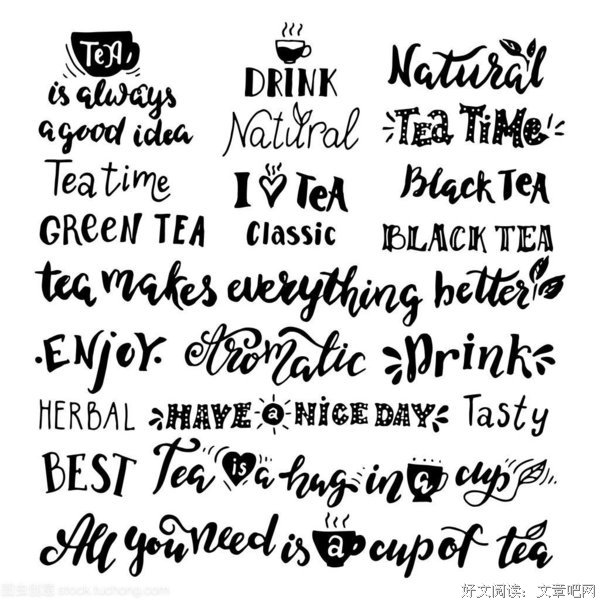 TeA
is always
a good idea
DRINK
Natural
Natural
Tea TiMe
Tea time
I TeA
Black TeA
GREEN TEA
Classic
BLACK TEA
tea makes everything better
ENJOY
Aromatic
Drink
HERBAL
HAVE a NICE DAY
Tasty
BEST
Tea is a hug in a cup
All you need is a cup of tea
stock.tuchong.com
好文阅读：文章吧网